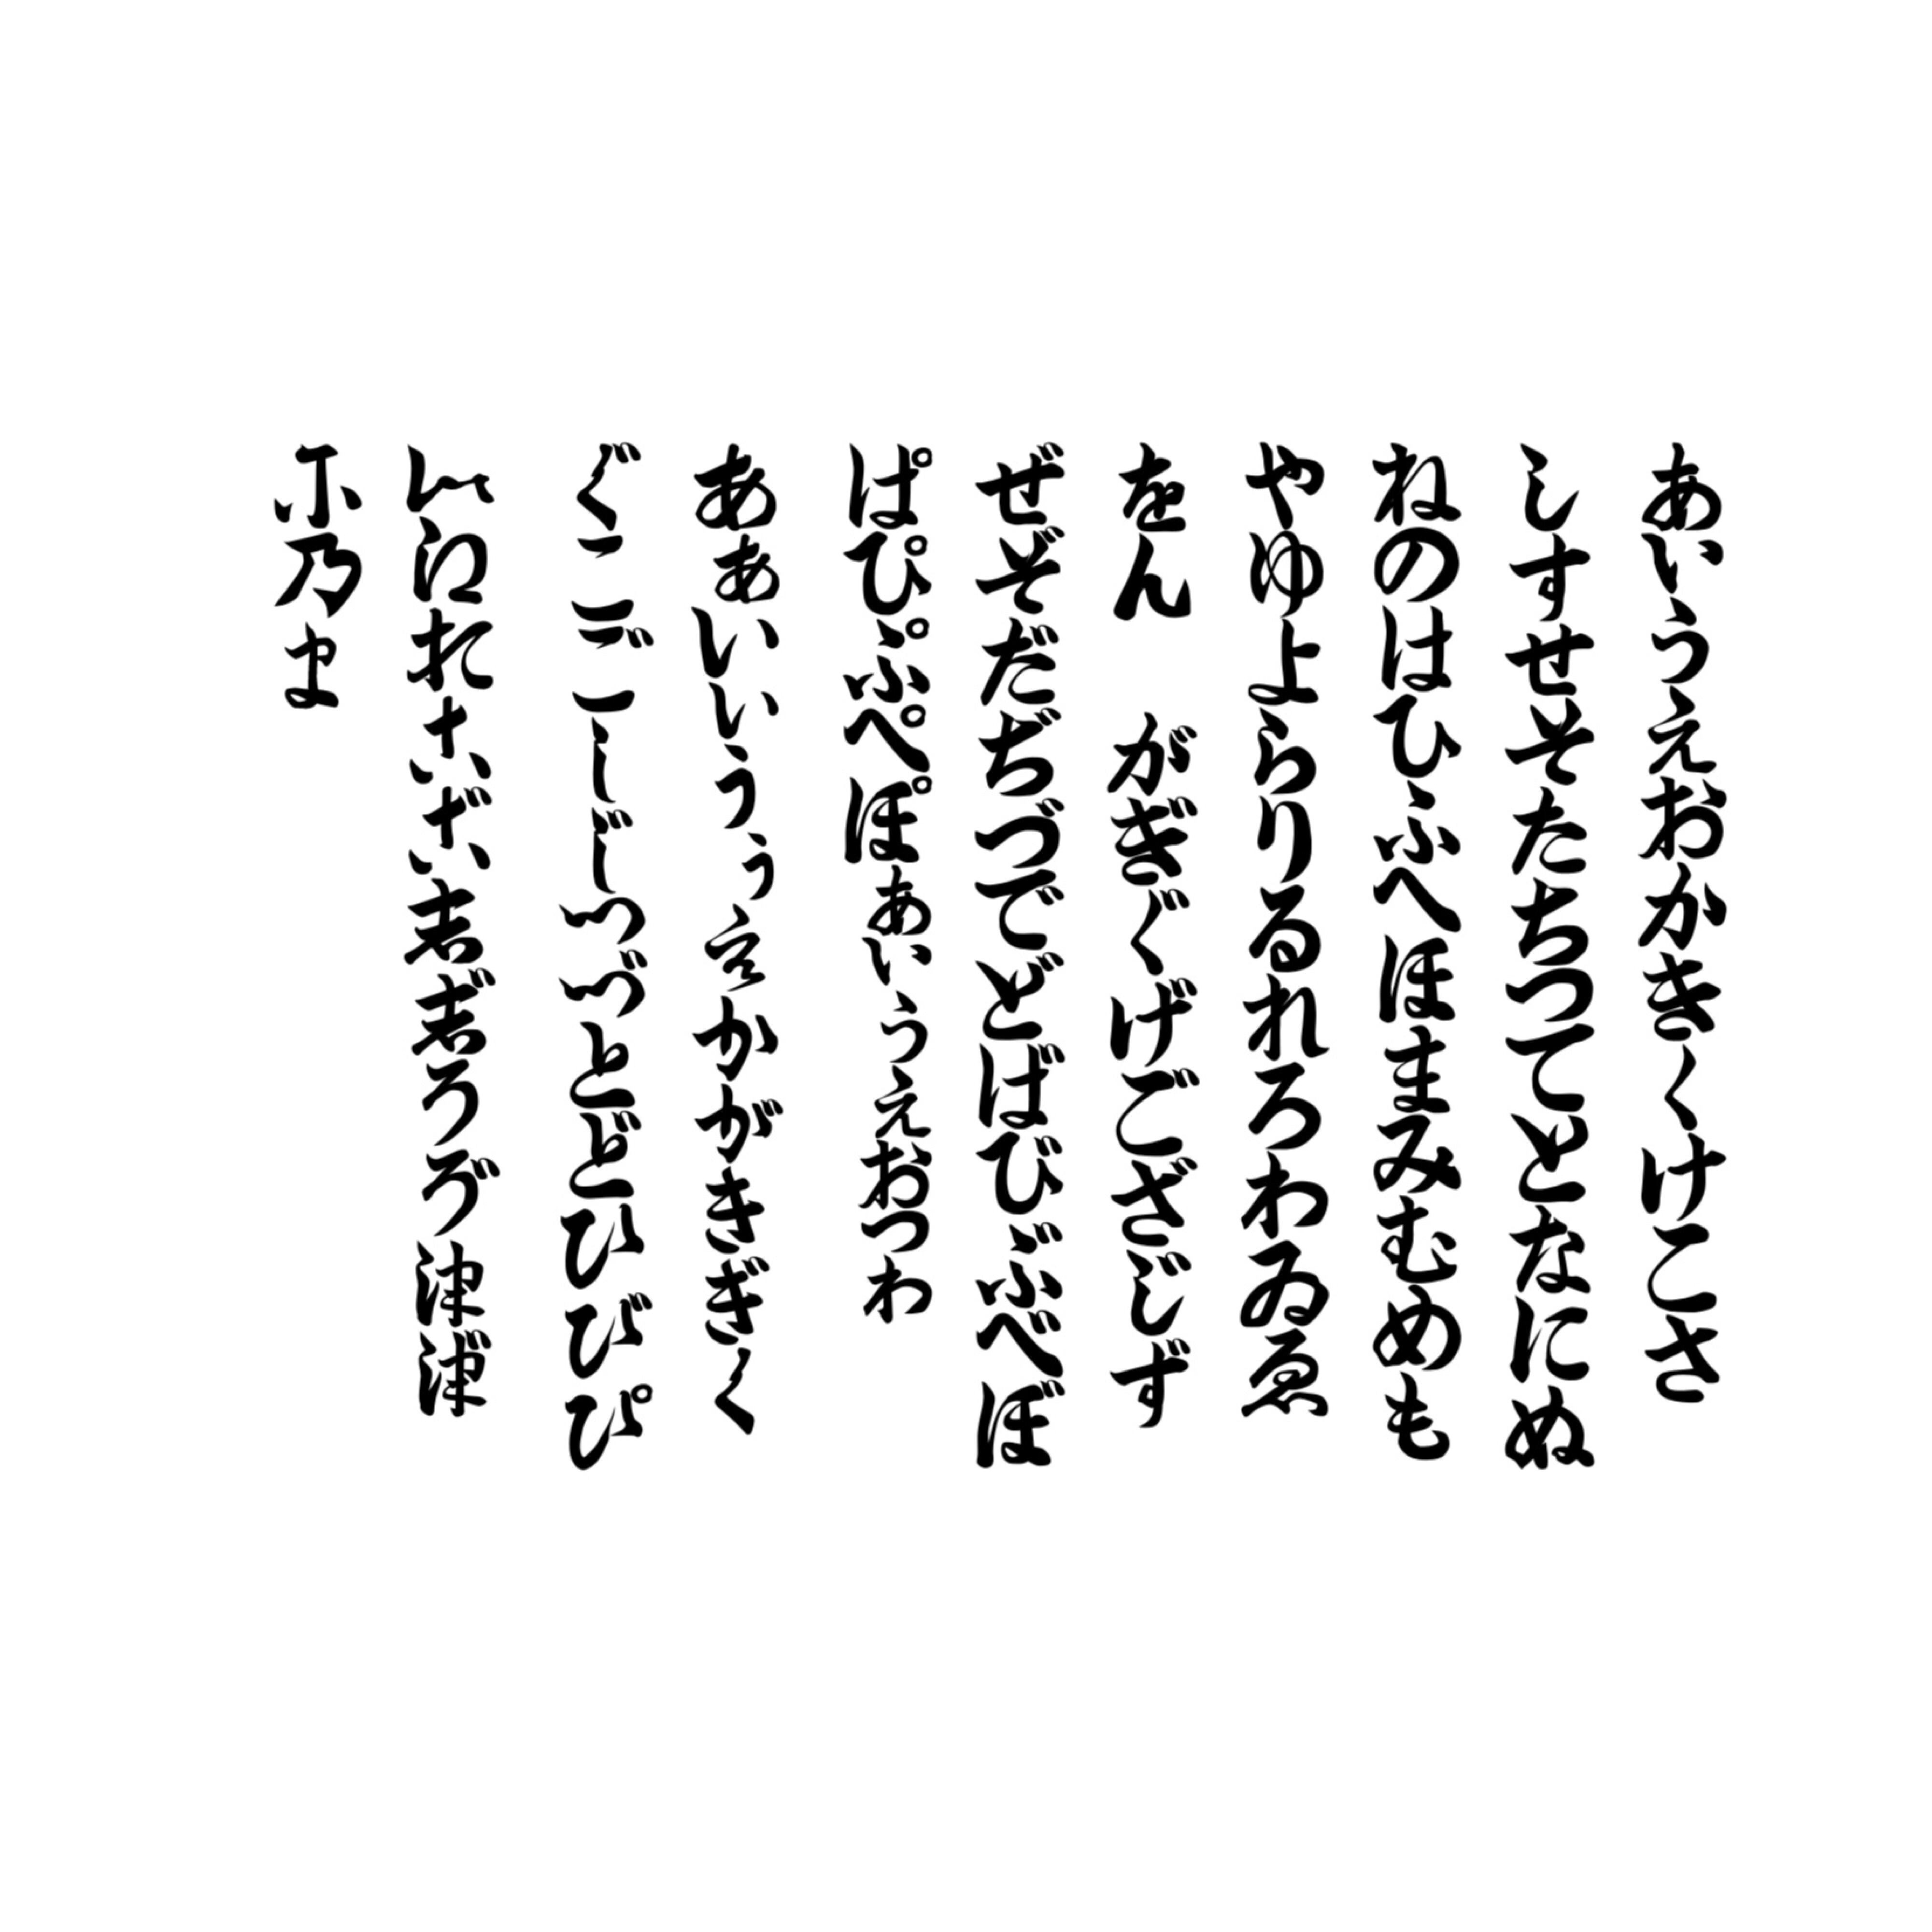 あいうえおかきくけこさ
しすせそたちつてとなにぬ
ねのはひふへほまみむめも
やゆよらりるれろわゐゑ
をん　がぎぐげござじず
ぜぞだぢづでどばびぶべぼ
ぱぴぷぺぽぁぃぅぇぉっゎ
あぁいぃうぅえかがきぎく
ぐこごしじつづとどひびぴ